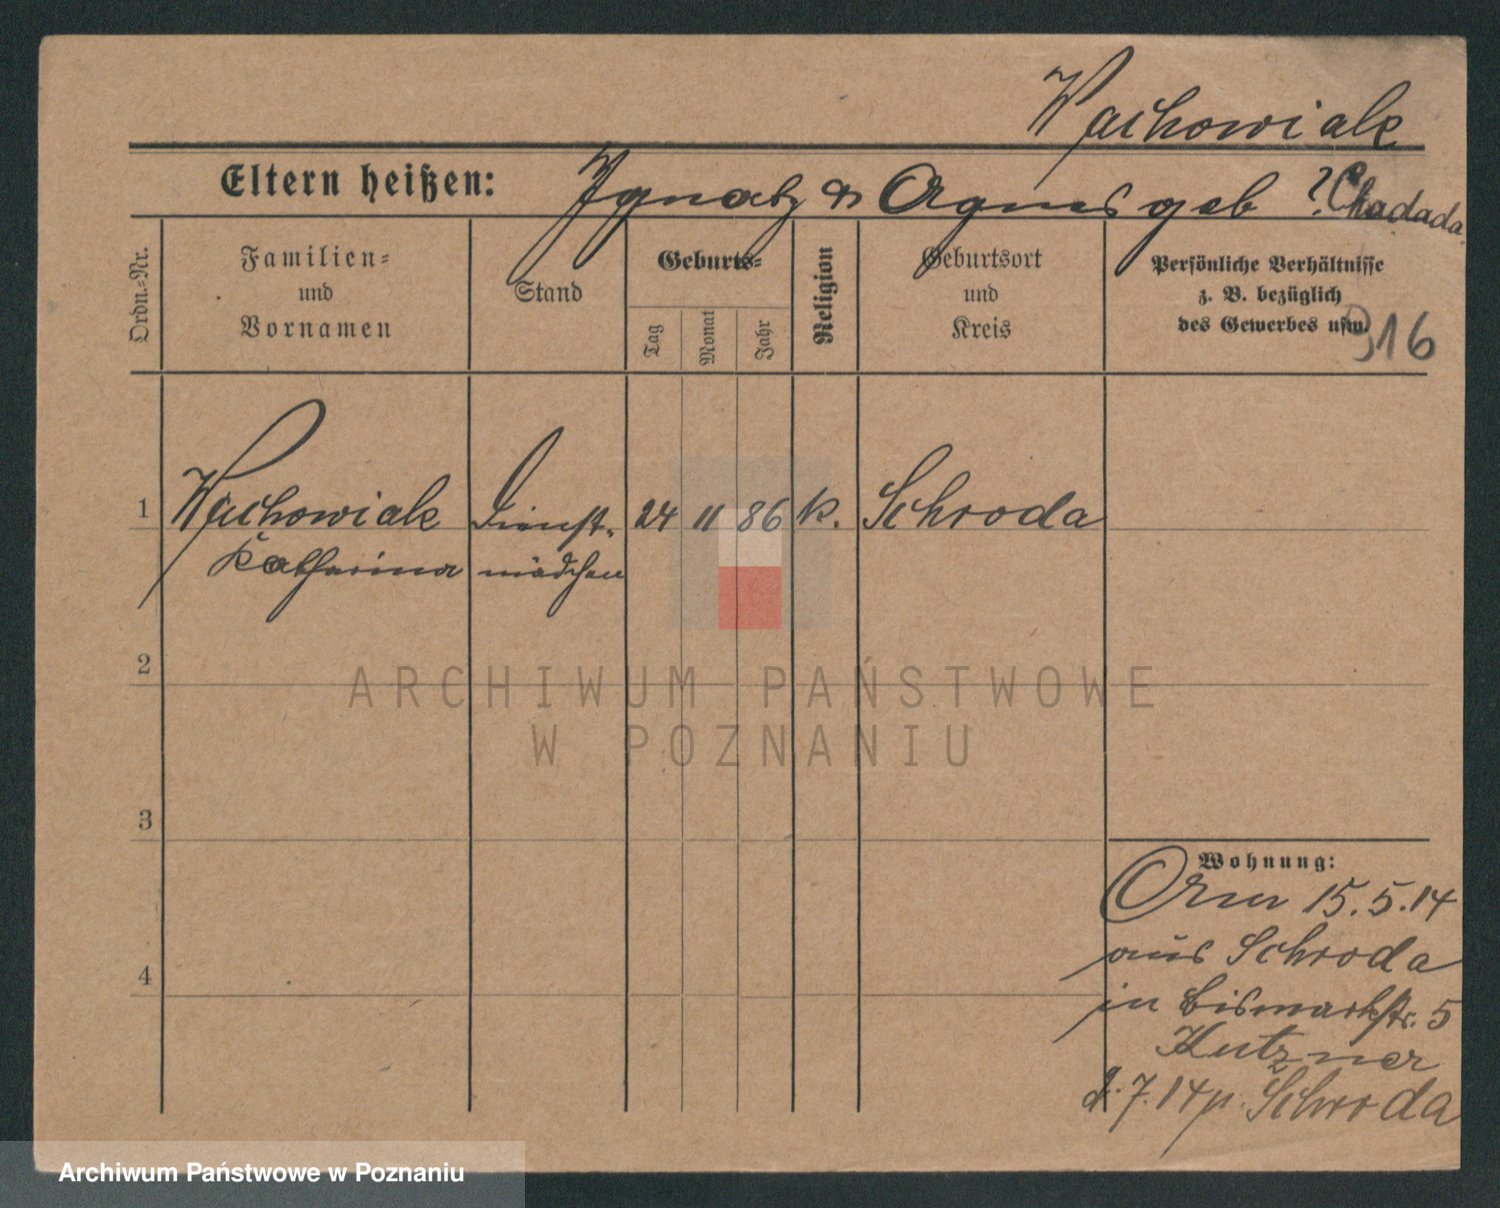 Wachowiak
Eltern heißen: Ignatz & Agnes geb ? Chadada
Ordn.-Nr.
Familien-
und
Vornamen
Stand
Geburts-
Tag
Monat
Jahr
Religion
Geburtsort
und
Kreis
Persönliche Verhältnisse
z. B. bezüglich
des Gewerbes usw.
916
1 Wachowiak Dienst- 24 11 86 k. Schroda
Katharina mädchen
2
ARCHIWUM PAŃSTWOWE
W POZNANIU
3
Wohnung:
15.5.14
aus Schroda
in Bismarkstr. 5
Kutzner
7.14 Schroda
4
Archiwum Państwowe w Poznaniu